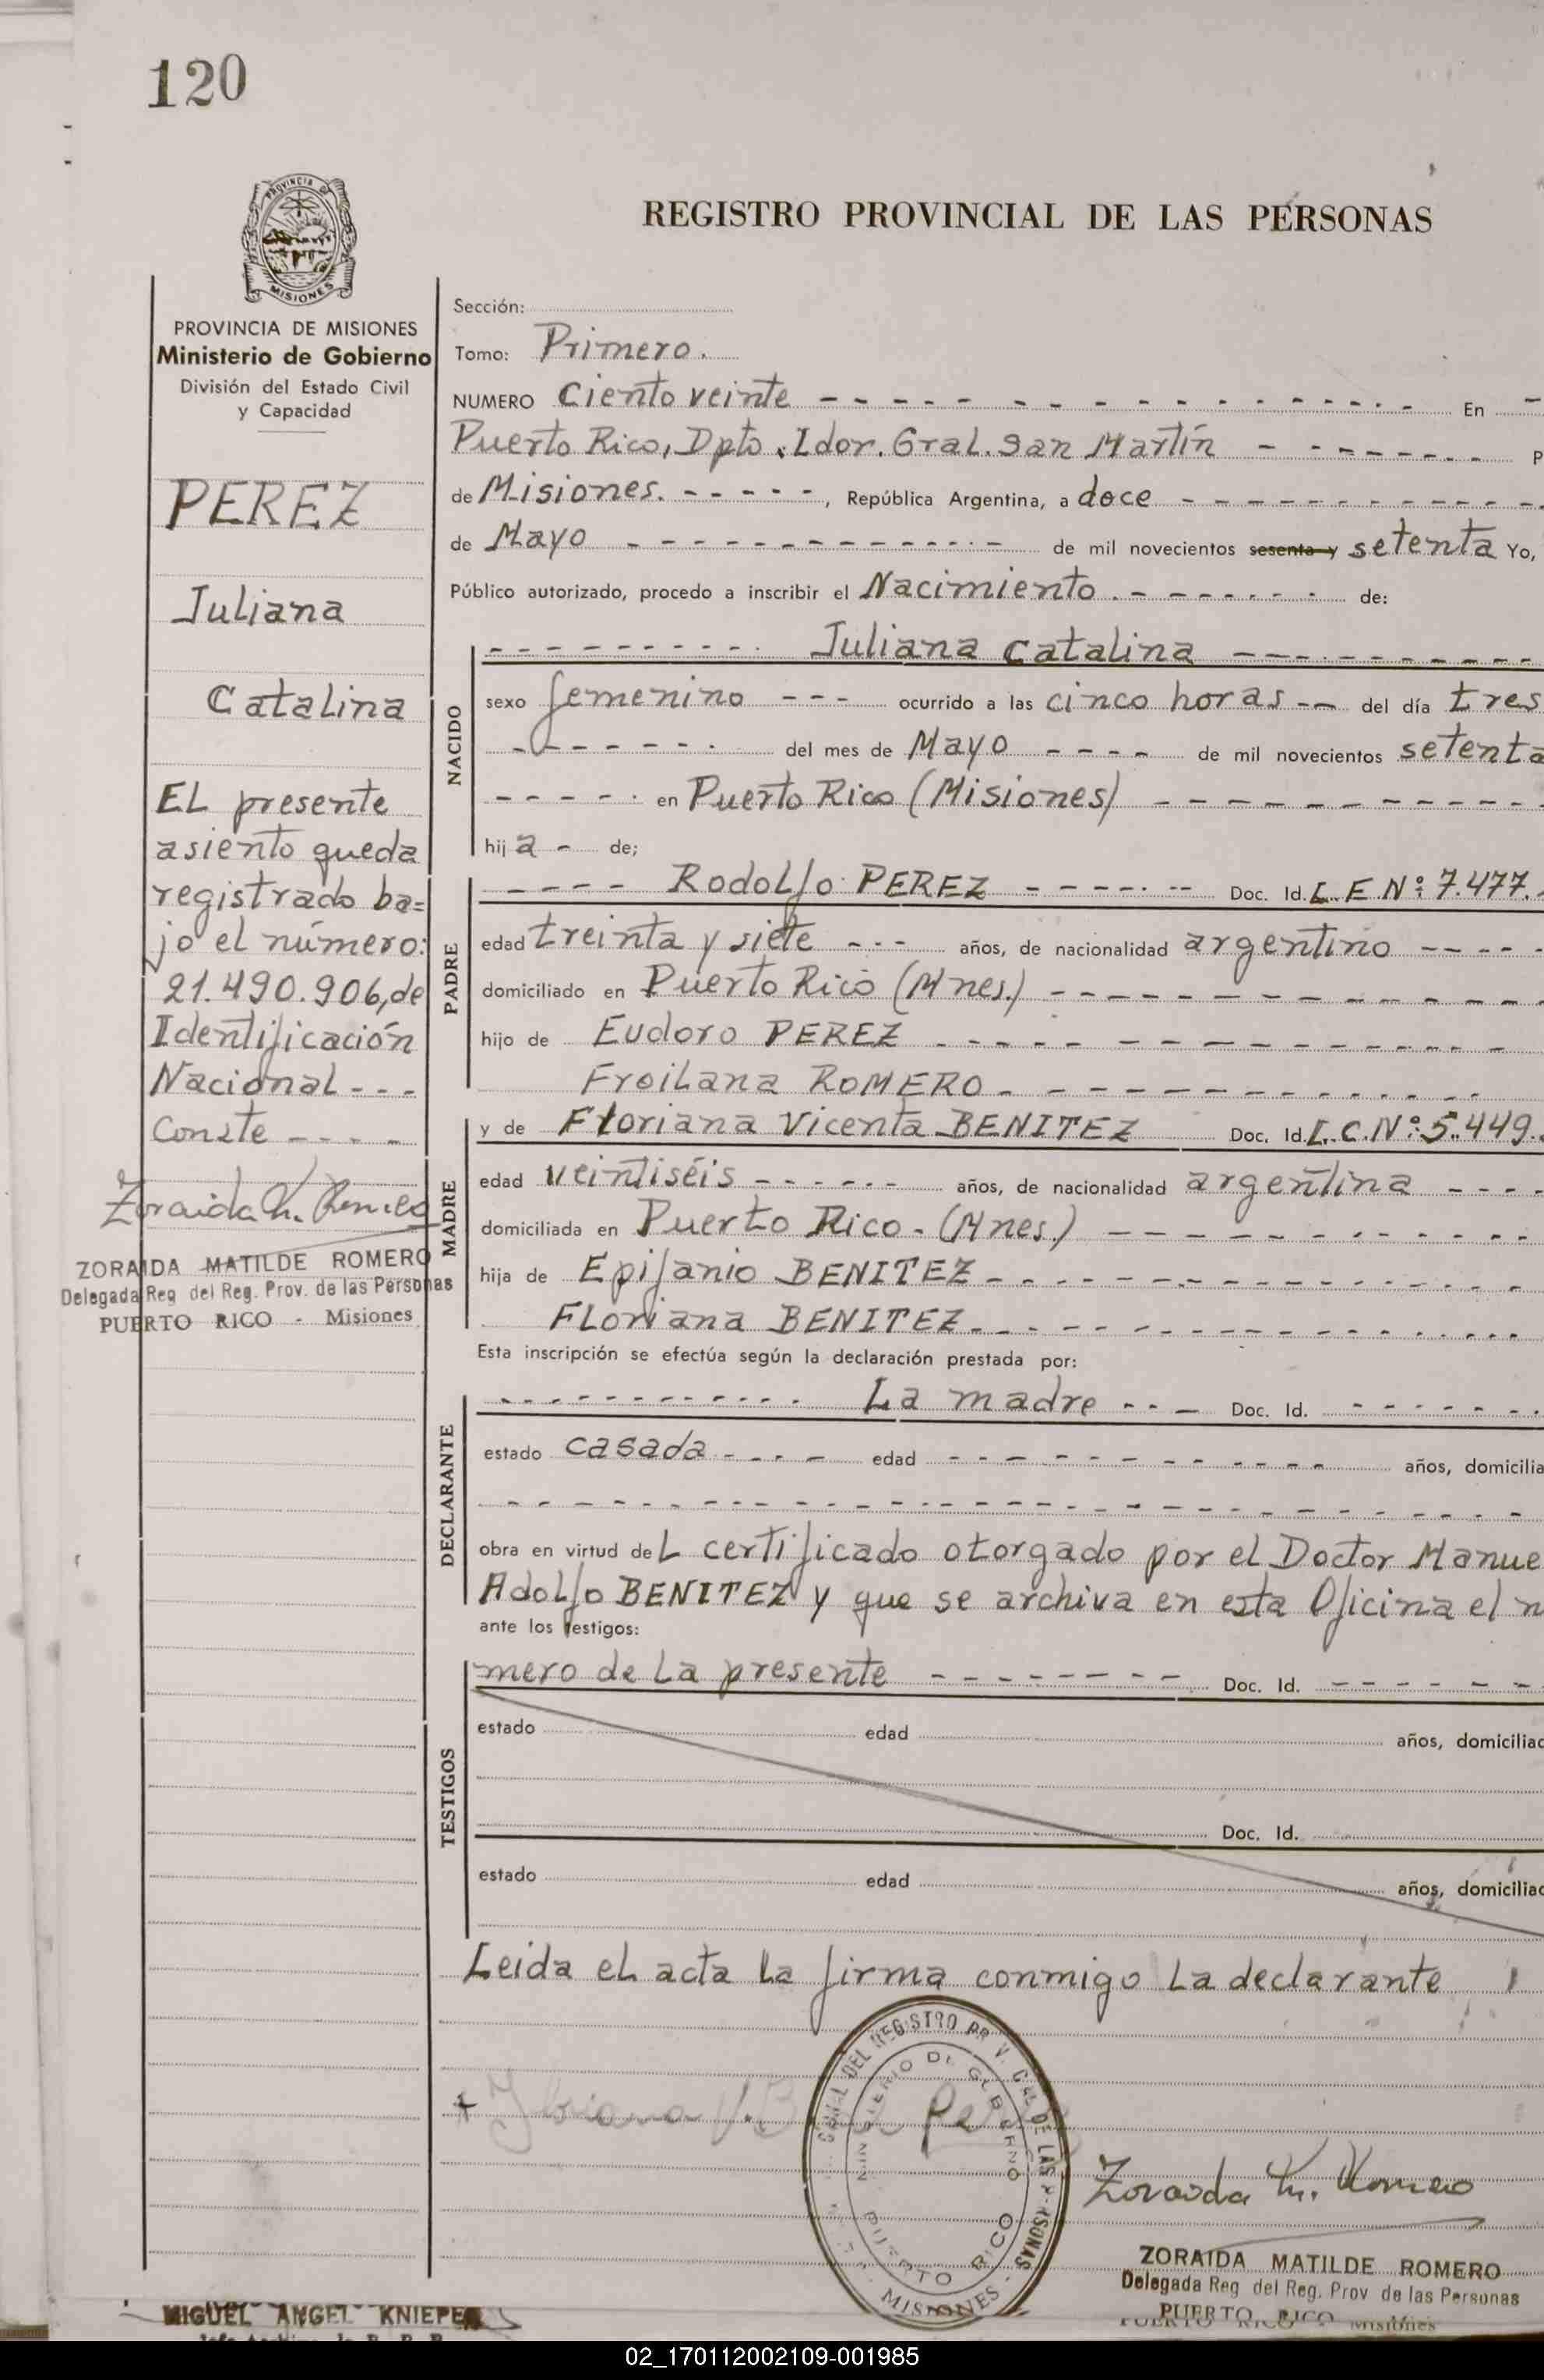 120
PROVINCIA DE
MISIONES
PROVINCIA DE MISIONES
Ministerio de Gobierno
División del Estado Civil
y Capacidad
PEREZ
Juliana
Catalina
EL presente
asiento queda
registrado ba=
jo el número:
21.490.906, de
Identificación
Nacional - - -
Conste - - - -
Zoraida M. Romero
ZORAIDA MATILDE ROMERO
Delegada Reg del Reg. Prov. de las Personas
PUERTO RICO - Misiones
REGISTRO PROVINCIAL DE LAS PERSONAS
Sección:
Tomo: Primero.
NUMERO Ciento veinte - - - - En -
Puerto Rico, Dpto. Ldor. Gral. San Martín - - - - P
de Misiones. - - - - -, República Argentina, a doce - - - -
de Mayo - - - - de mil novecientos sesenta y setenta Yo,
Público autorizado, procedo a inscribir el Nacimiento. - - - - de:
NACIDO
- - - - Juliana Catalina - - - -
sexo femenino - - - ocurrido a las cinco horas - - del día tres
- - - - del mes de Mayo - - - - de mil novecientos setenta
- - - - en Puerto Rico (Misiones) - - - -
hija - de;
PADRE
- - - - Rodolfo PEREZ - - - - Doc. Id. L. E Nº: 7.477.
edad treinta y siete - - - años, de nacionalidad argentino - - - -
domiciliado en Puerto Rico (Mnes.) - - - -
hijo de Eudoro PEREZ - - - -
Froilana ROMERO - - - -
MADRE
y de Floriana Vicenta BENITEZ Doc. Id. L. C. Nº: 5.449.
edad veintiséis - - - - años, de nacionalidad argentina - - - -
domiciliada en Puerto Rico - (Mnes.) - - - -
hija de Epifanio BENITEZ - - - -
Floriana BENITEZ - - - -
Esta inscripción se efectúa según la declaración prestada por:
DECLARANTE
- - - - La madre - - - Doc. Id. - - - -
estado casada - - - - edad - - - - años, domicilia
- - - -
obra en virtud del certificado otorgado por el Doctor Manue
Adolfo BENITEZ y que se archiva en esta Oficina el n
ante los testigos:
TESTIGOS
mero de La presente - - - - Doc. Id. - - - -
estado edad años, domiciliad
Doc. Id.
estado edad años, domiciliad
Leida el acta la firma conmigo La declarante
DEL REGISTRO DE LAS PERSONAS
MINISTERIO DE GOBIERNO
PUERTO RICO
- MISIONES -
Zoraida M. Romero
ZORAIDA MATILDE ROMERO
Delegada Reg del Reg. Prov de las Personas
PUERTO RICO Misiones
MIGUEL ANGEL KNIEPER
02_170112002109-001985